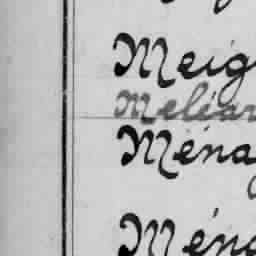 Meig
Meléar
Ména
Ména